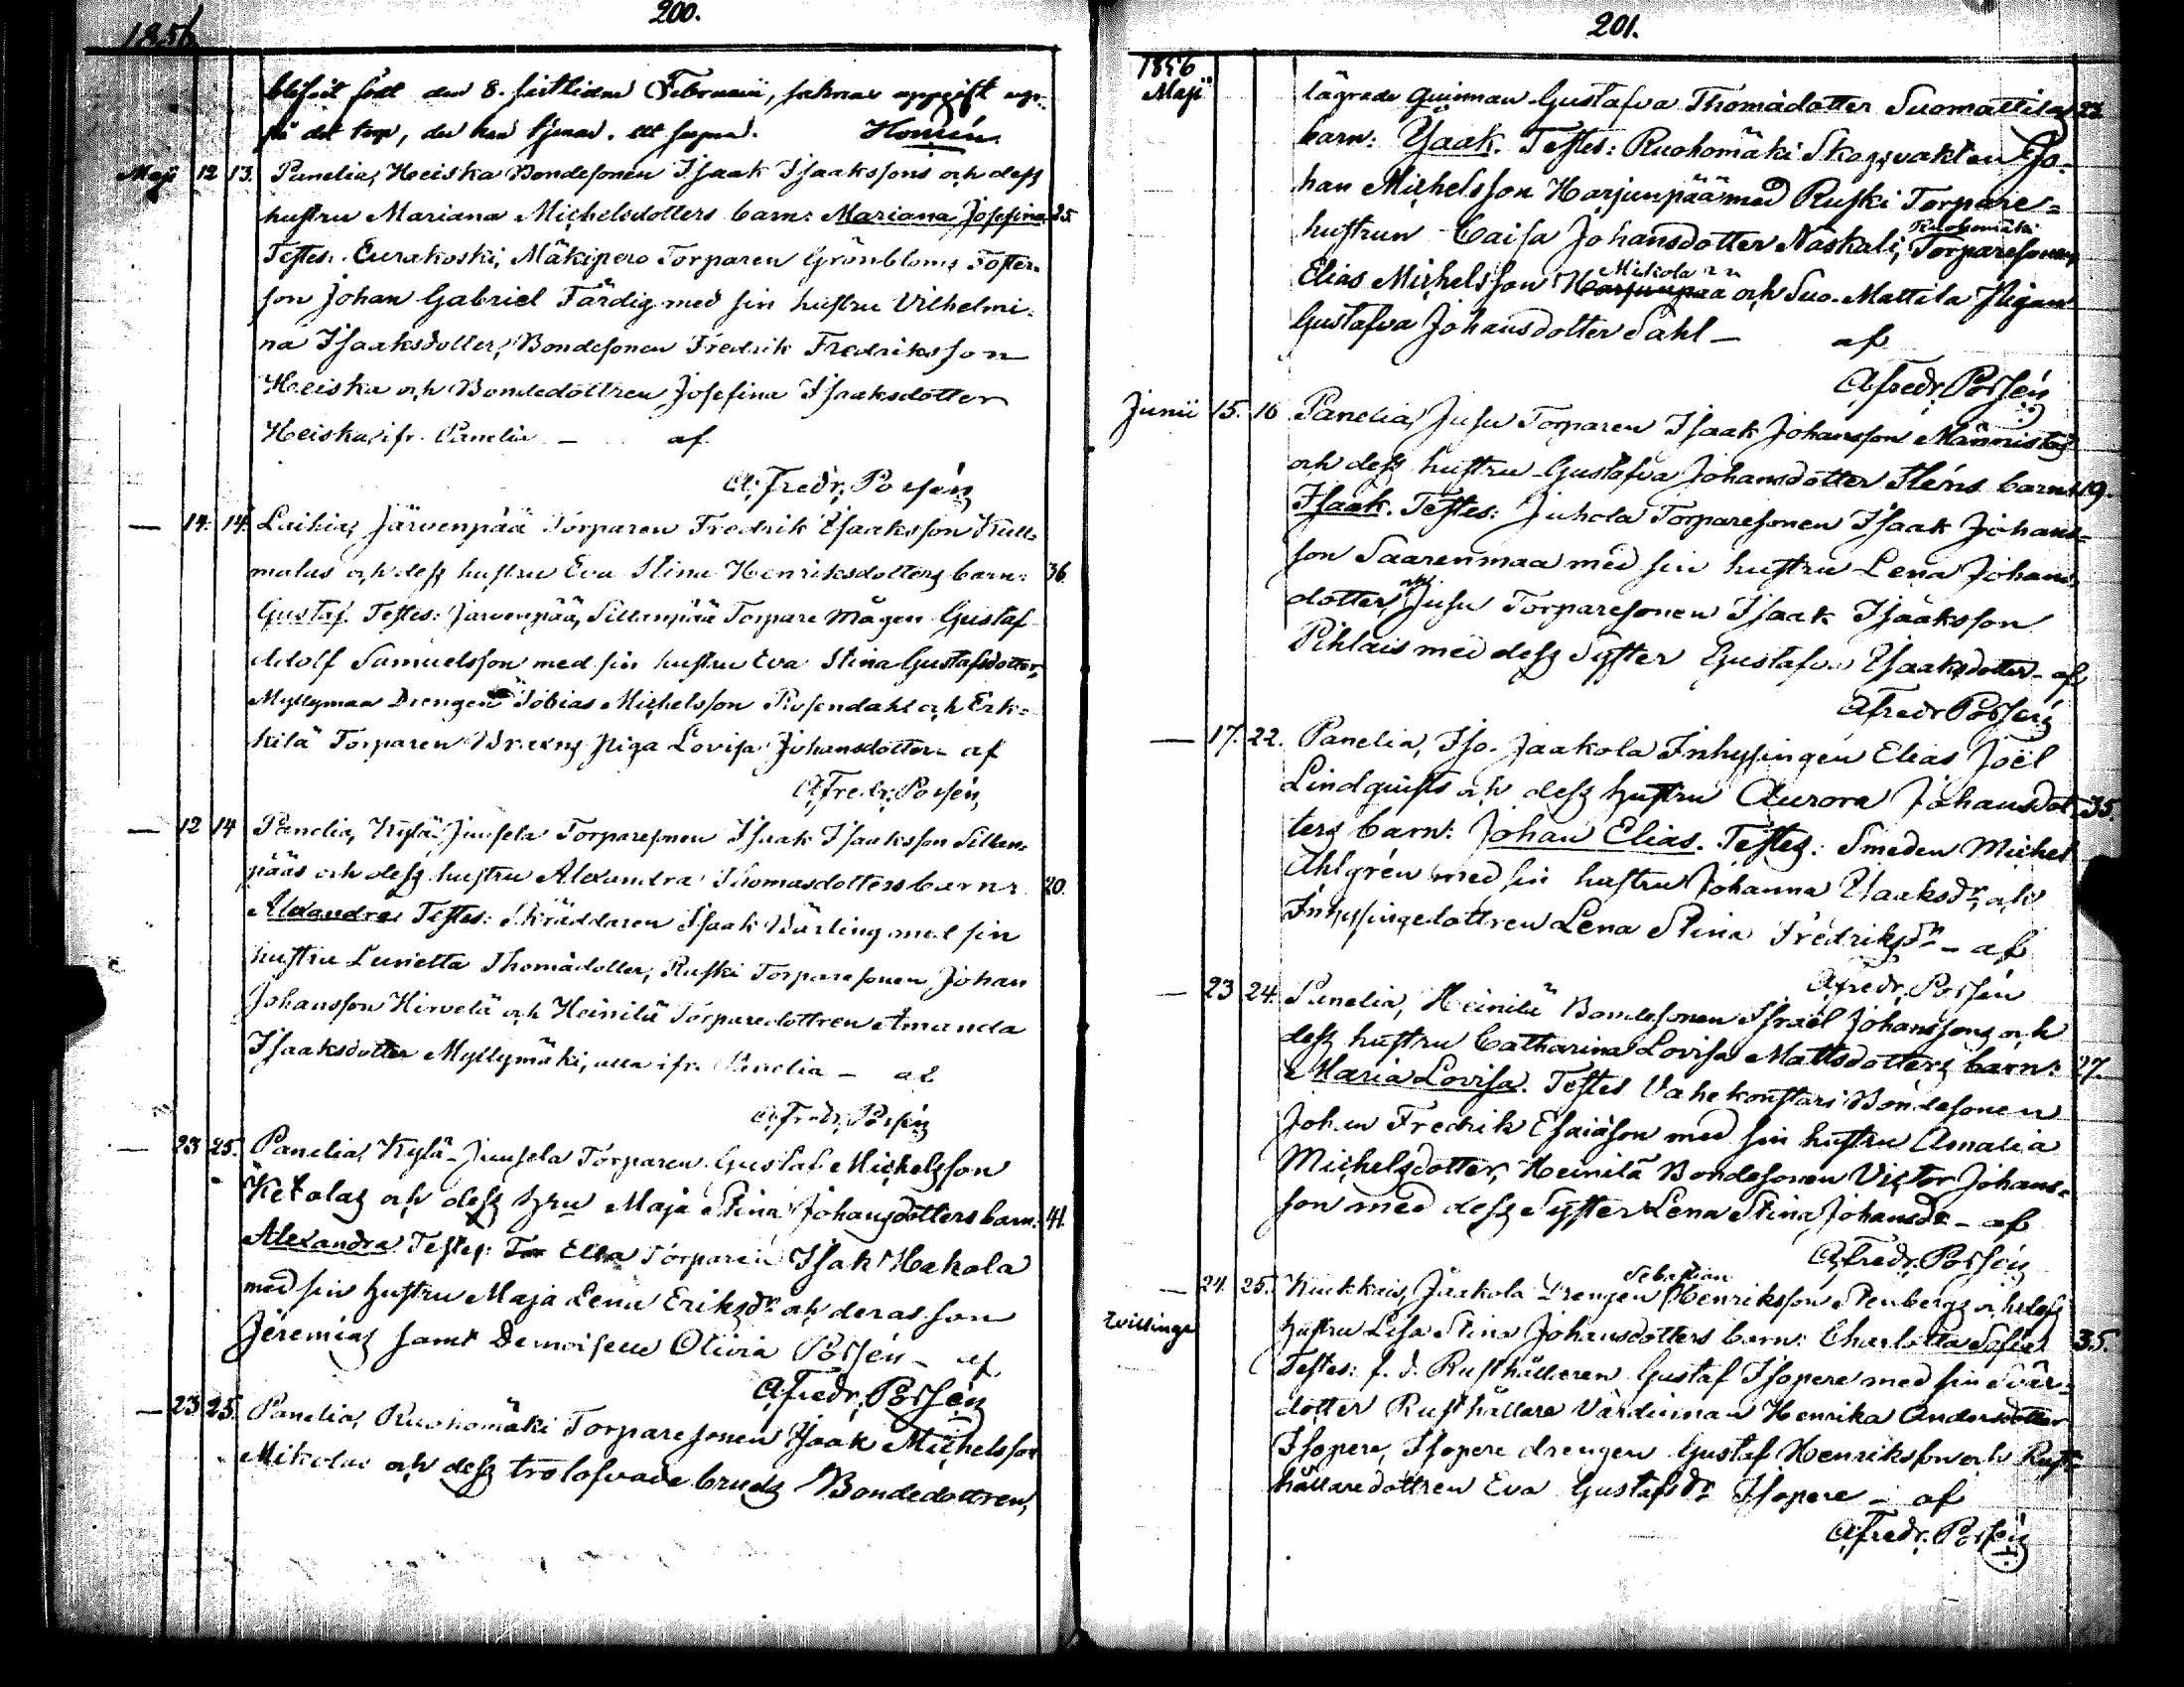 200.
1856
blifvit född den 8. sistlidne Februarii, saknas uppgift
på det torp, der han tjenar. Homén
Maji 12 13. Panelia, Heiska Bondesonen Isaak Isaakssons och dess
hustru Mariana Michelsdotters barn: Mariana Josefina 25
Testes: Eurakoski, Mäkipero Torparen Grönbloms Foster-
son Johan Gabriel Färdig med sin hustru Vilhelmi-
na Isaaksdotter, Bondesonen Fredrik Fredriksson
Heiska och Bondedottren Josefina Isaaksdotter
Heiska, ifr. Panelia – af
A. Fredr. Possén
— 14. 14. Laihia, Järvenpää Torparen Fredrik Isaaksson Kull-
malas och dess hustru Eva Stina Henriksdotters barn: 36
Gustaf. Testes: Järvenpää, Sillanpää Torpare Mågen Gustaf
Adolf Samuelsson med sin hustru Eva Stina Gustafsdotter,
Myllymaa Drengen Tobias Michelsson Rosendahl och Erk-
kilä Torparen Piga Lovisa Johansdotter – af
A. Fredr. Possén
— 12 14 Panelia, Kylä-Juusela Torparesonen Isaak Isaaksson Sillan-
pääs och dess hustru Alexandra Thomasdotters barn: 20.
Alexandra Testes: Skräddaren Isaak Wärling med sin
hustru Lunetta Thomädotter, Ruski Torparesonen Johan
Johansson Hirvelä och Heinilä Torparedottren Amanda
Isaaksdotter Myllymäki, alla ifr. Panelia – af
A. Fredr. Possén
— 23 25. Panelia, Kylä-Juusela Torparen Gustaf Michelsson
Ketolas och dess hru Maja Stina Johansdotters barn: 41.
Alexandra Testes: Tor Ella Torparen Isak Hakola
med sin hustru Maja Lena Eriksdr och deras son
Jeremias samt Demoiselle Olivia Possén – af
A. Fredr. Possén
— 23 25. Panelia, Ruohomäki Torparesonen Isaak Michelsson
Mikolas och dess trolofvade bruds Bondedottren,
201.
1856
Maji lägrade qvinnan Gustafva Thomädotter Suomattilas 22
barn: Isaak. Testes: Ruohomäki Skogsvakten Jo-
han Michelsson Harjunpää med Ruski Torpare-
hustrun Caisa Johansdotter Naskali, Ruohomäki Torparesonen
Elias Michelsson Harjunpää Mickola och Suo-Mattila Pigan
Gustafva Johansdotter Sahl – af
A. Fredr. Possén
Junii 15. 16 Panelia, Jusu Torparen Isaak Johansson Männistös
och dess hustru Gustafva Johansdotter Sténs barn: 19.
Isaak. Testes: Juhola Torparesonen Isaak Johans-
son Saarenmaa med sin hustru Lena Johans-
dotter, och Jusu Torparesonen Isaak Isaaksson
Pihlais med dess Syster Gustafva Isaaksdotter – af
A. Fredr. Possén
— 17. 22. Panelia, Iso-Jaakola Inhysingen Elias Joël
Lindquists och dess hustru Aurora Johansdot- 35.
ters barn: Johan Elias. Testes: Smeden Michel
Ahlgrén med sin hustru Johanna Isaaksdr, och
Inhysingedottren Lena Stina Fredriksdr – af
A. Fredr. Possén
— 23 24. Panelia, Heinilä Bondesonen Israel Johanssons och
dess hustru Catharina Lovisa Mattsdotters barn: 27.
Maria Lovisa. Testes Vahekonstari Bondesonen
Johan Fredrik Esaiäson med sin hustru Amalia
Michelsdotter, Heinilä Bondesonen Victor Johans-
son med dess Syster Lena Stina Johansdr – af
A. Fredr. Possén
— 24. 25. Kiukkais, Jaakola Drengen Sebastian Henriksson Stenbergs och dess
Tvillinge hustru Lisa Stina Johansdotters barn: Charlotta Sofia 35.
Testes: f. d. Rusthållaren Gustaf Isopere med sin Svär-
dotter Rusthållare Värdinnan Henrika Andersdotter
Isopere, Isopere drengen Gustaf Henriksson och Rust-
hållaredottren Eva Gustafsdr Isopere – af
A. Fredr. Possén